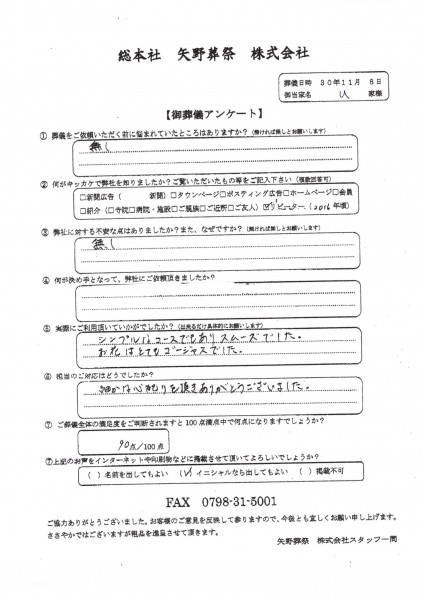 総本社　矢野葬祭　株式会社
葬儀日時　30年11月　8日
御当家名　I.I　家様
【御葬儀アンケート】
① 葬儀をご依頼いただく前に悩まれていたところはありますか？（無ければ無しとお願いします）
無し
② 何がキッカケで弊社を知りましたか？ご覧いただいたもの等をご記入下さい（複数回答可）
□新聞広告（　　　新聞）□タウンページ□ポスティング広告□ホームページ□会員
□紹介（□寺院□病院・施設□ご親族□ご近所□ご友人）☑リピーター．（2016年頃）
③ 弊社に対する不安な点はありましたか？また、なぜですか？（無ければ無しとお願いします）
無し
④ 何が決め手となって、弊社にご依頼頂きましたか？
⑤ 実際にご利用頂いていかがでしたか？（出来るだけ具体的にお願いします）
シンプルなコースでもありスムーズでした。
お花はとてもゴージャスでした。
⑥ 担当のご対応はどうでしたか？
細かな心配りを頂きありがとうございました。
⑦ ご葬儀全体の満足度をご判断されますと100点満点中で何点になりますでしょうか？
90点／100点
⑦上記のお声をインターネットや印刷物などに掲載させて頂いてよろしいでしょうか？
（　）名前を出してもよい　（✓）イニシャルなら出してもよい　（　）掲載不可
FAX　0798-31-5001
ご協力ありがとうございました。お客様のご意見を反映して参りますので、今後とも宜しくお願い申し上げます。
ささやかではございますが粗品を進呈させて頂きます。
矢野葬祭　株式会社スタッフ一同